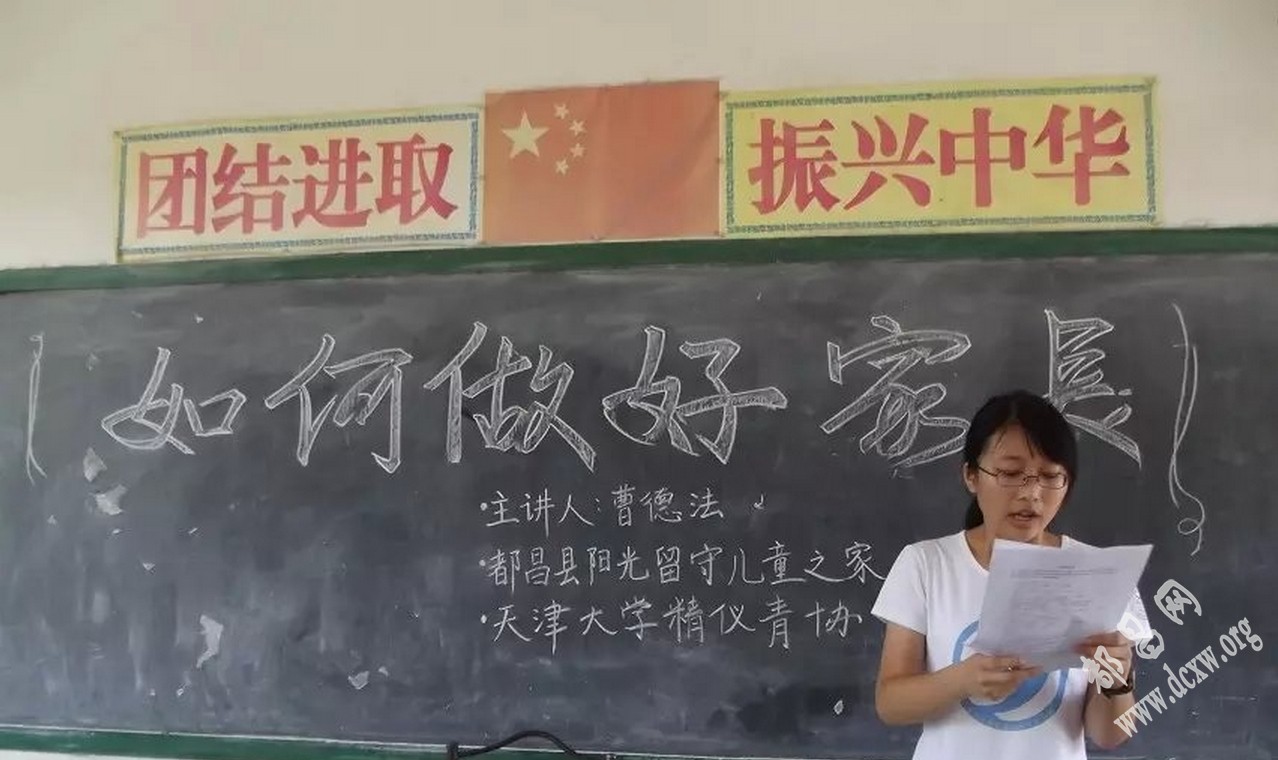 团结进取
振兴中华
如何做好家長
·主讲人:曹德法
·都昌县阳光留守儿童之家
·天津大学精仪青协
都昌网
www.dcxw.org